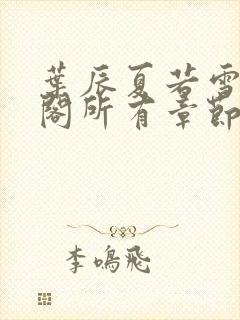 葉辰夏若雪
閣所有章節
李鳴飛